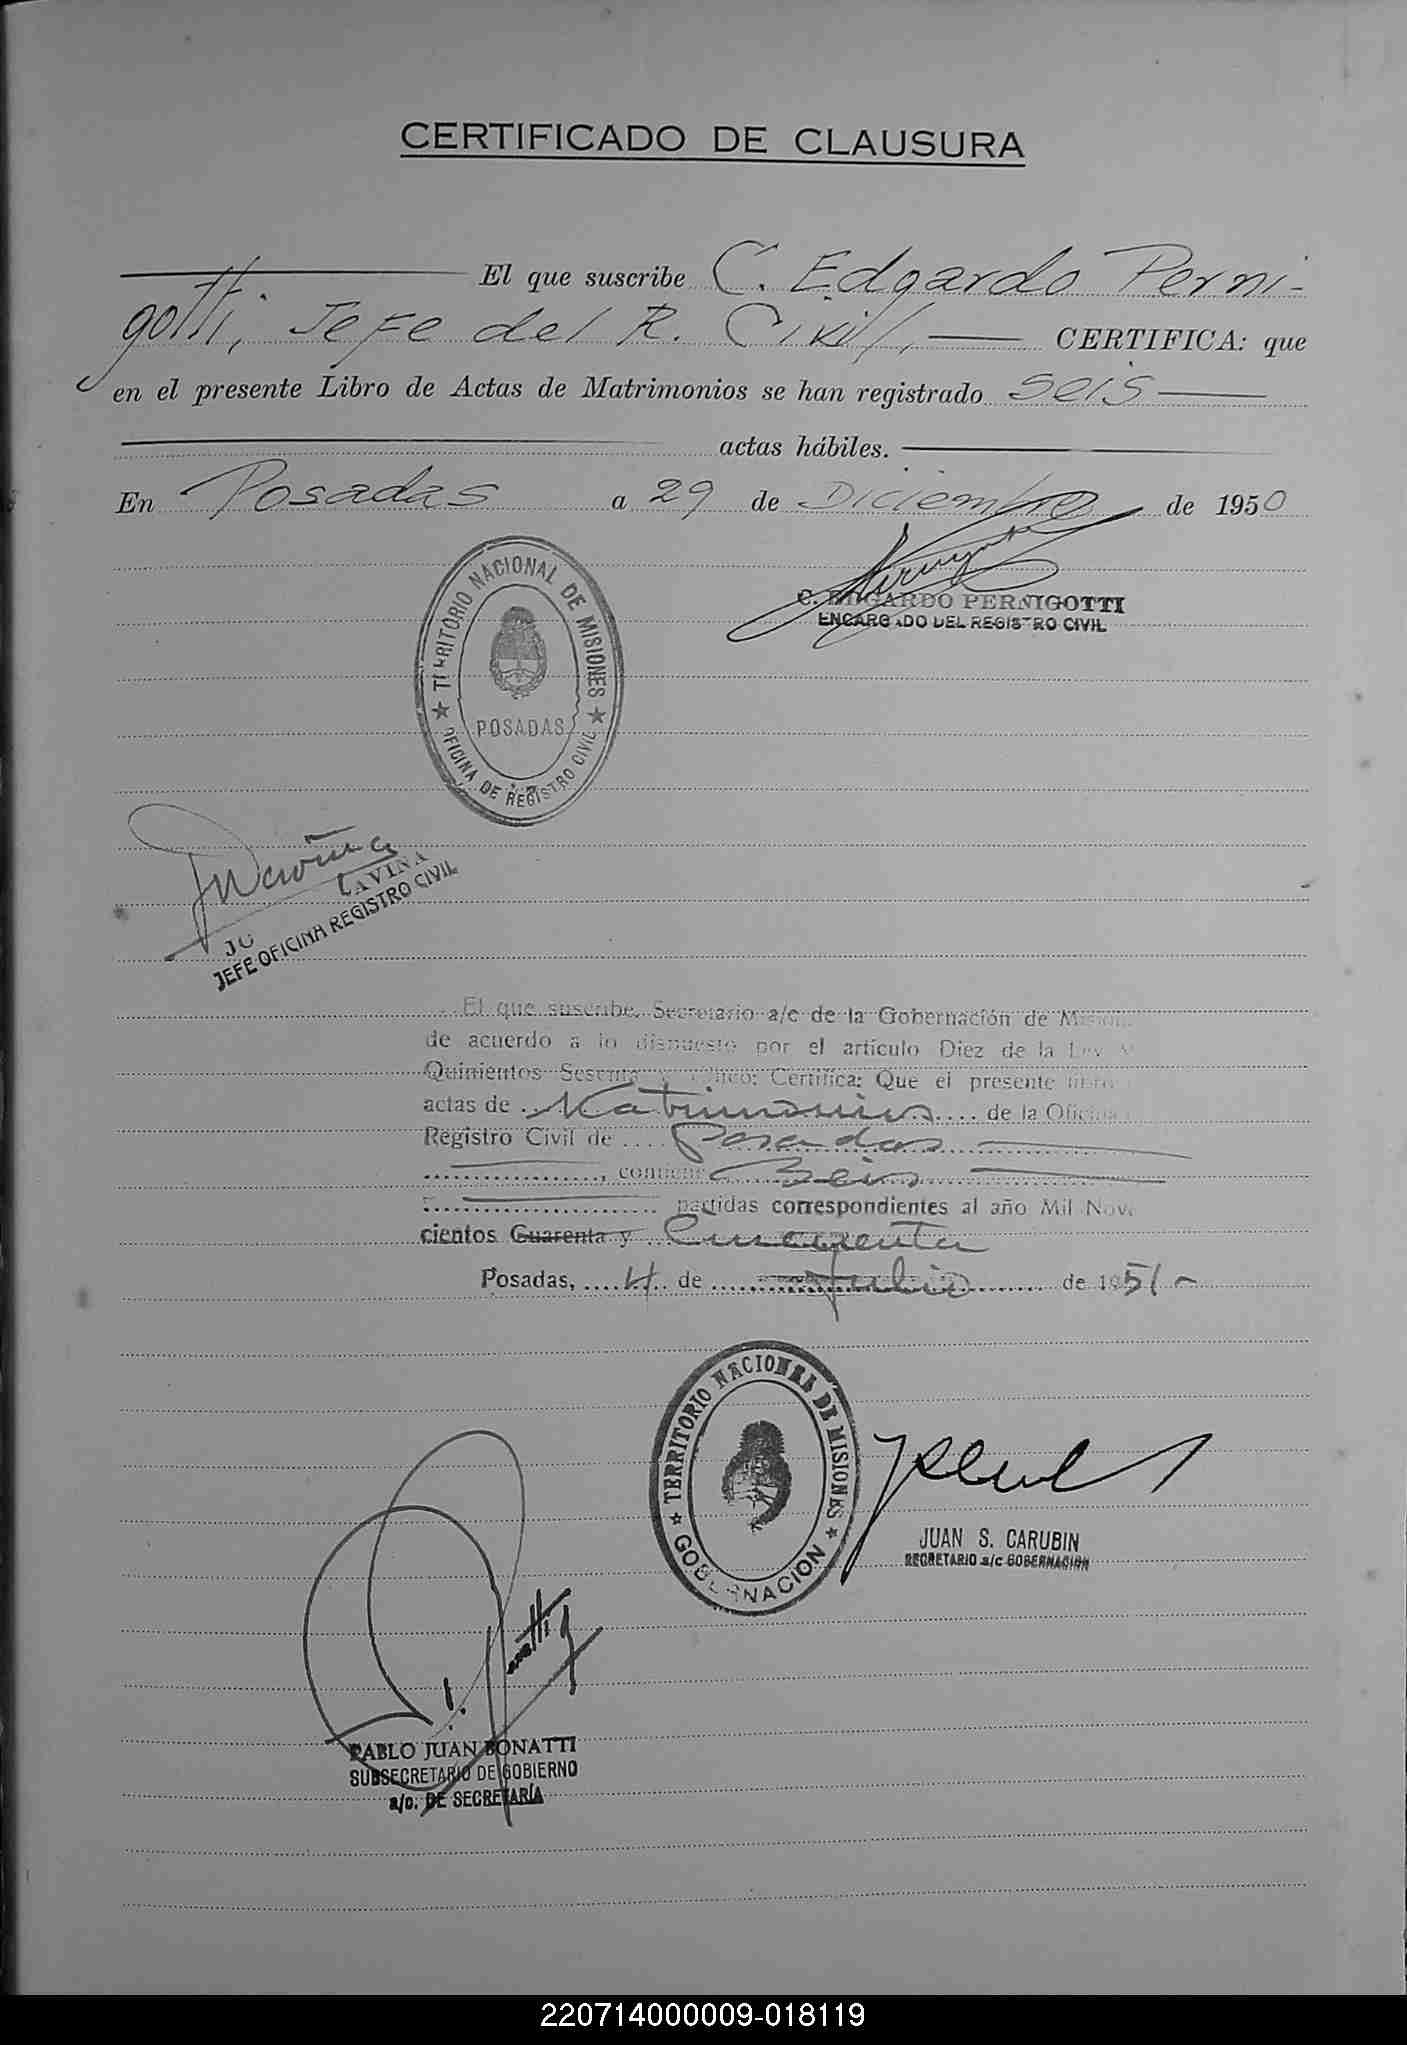 CERTIFICADO DE CLAUSURA
El que suscribe C. Edgardo Perni-
gotti, Jefe del R. Civil, CERTIFICA: que
en el presente Libro de Actas de Matrimonios se han registrado seis
actas hábiles.
En Posadas a 29 de Diciembre de 1950
C. EDGARDO PERNIGOTTI
ENCARGADO DEL REGISTRO CIVIL
TERRITORIO NACIONAL DE MISIONES
POSADAS
OFICINA DE REGISTRO CIVIL
LAVIÑA
JEFE OFICINA REGISTRO CIVIL
El que suscribe, Secretario a/c de la Gobernación de Misiones
de acuerdo a lo dispuesto por el artículo Diez de la Ley
Quinientos Sesenta y Cinco; Certifica: Que el presente libro
actas de Matrimonios de la Oficina
Registro Civil de Posadas
, contiene Seis
partidas correspondientes al año Mil Nove
cientos Cuarenta y Cincuenta
Posadas, 4 de Julio de 1951-
TERRITORIO NACIONAL DE MISIONES
GOBERNACION
JUAN S. CARUBIN
SECRETARIO a/c GOBERNACION
PABLO JUAN BONATTI
SUBSECRETARIO DE GOBIERNO
a/c. DE SECRETARÍA
220714000009-018119